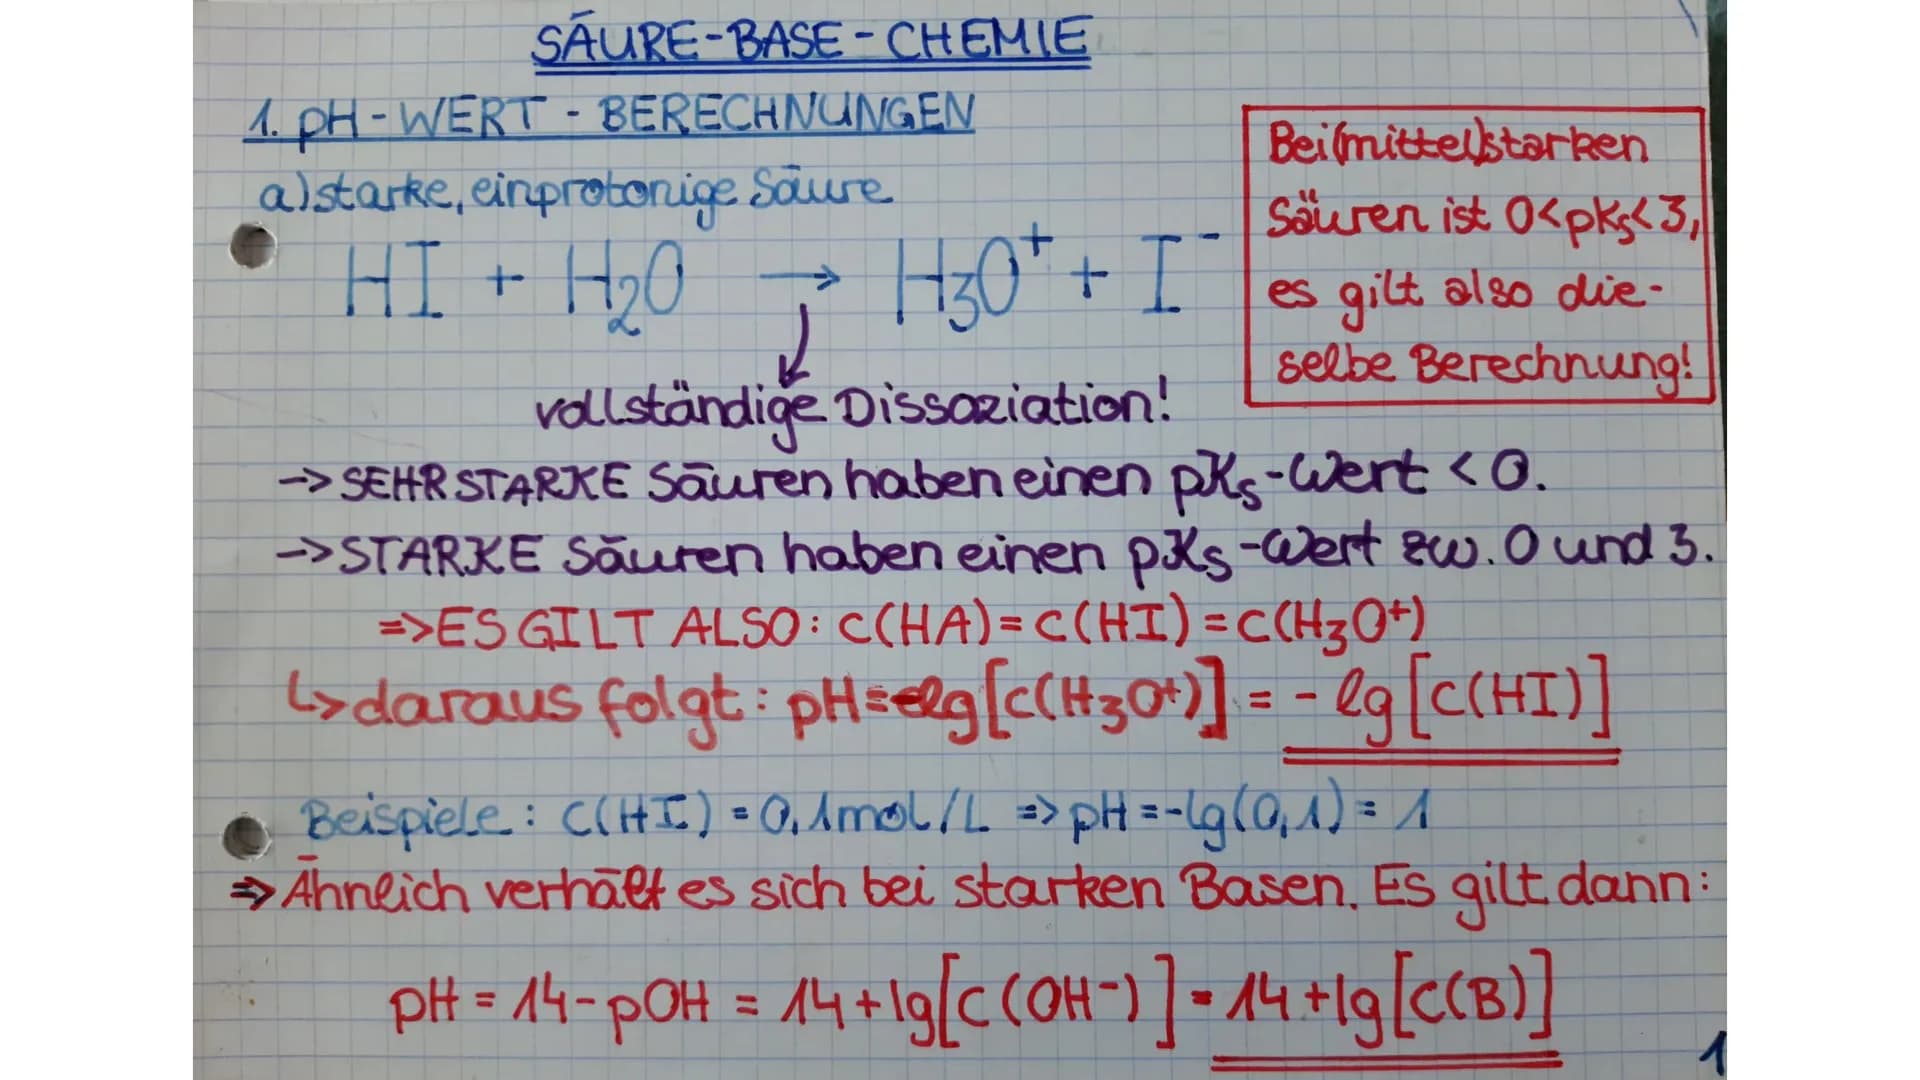 SÄURE-BASE-CHEMIE
1. pH-WERT-BERECHNUNGEN
a) starke, einprotonige Säure
HI + H₂O → H₃O⁺ + I⁻
Bei (mittel)starken
Säuren ist 0<pKs<3,
es gilt also die-
selbe Berechnung!
vollständige Dissoziation!
-> SEHR STARKE Säuren haben einen pKs-Wert < 0.
-> STARKE Säuren haben einen pKs-Wert zw. 0 und 3.
=> ES GILT ALSO: c(HA) = c(HI) = c(H₃O⁺)
↳ daraus folgt: pH = -lg[c(H₃O⁺)] = - lg[c(HI)]
Beispiele: c(HI) = 0,1mol/L => pH = -lg(0,1) = 1
=> Ähnlich verhält es sich bei starken Basen. Es gilt dann:
pH = 14 - pOH = 14 + lg[c(OH⁻)] = 14 + lg[c(B)]
1